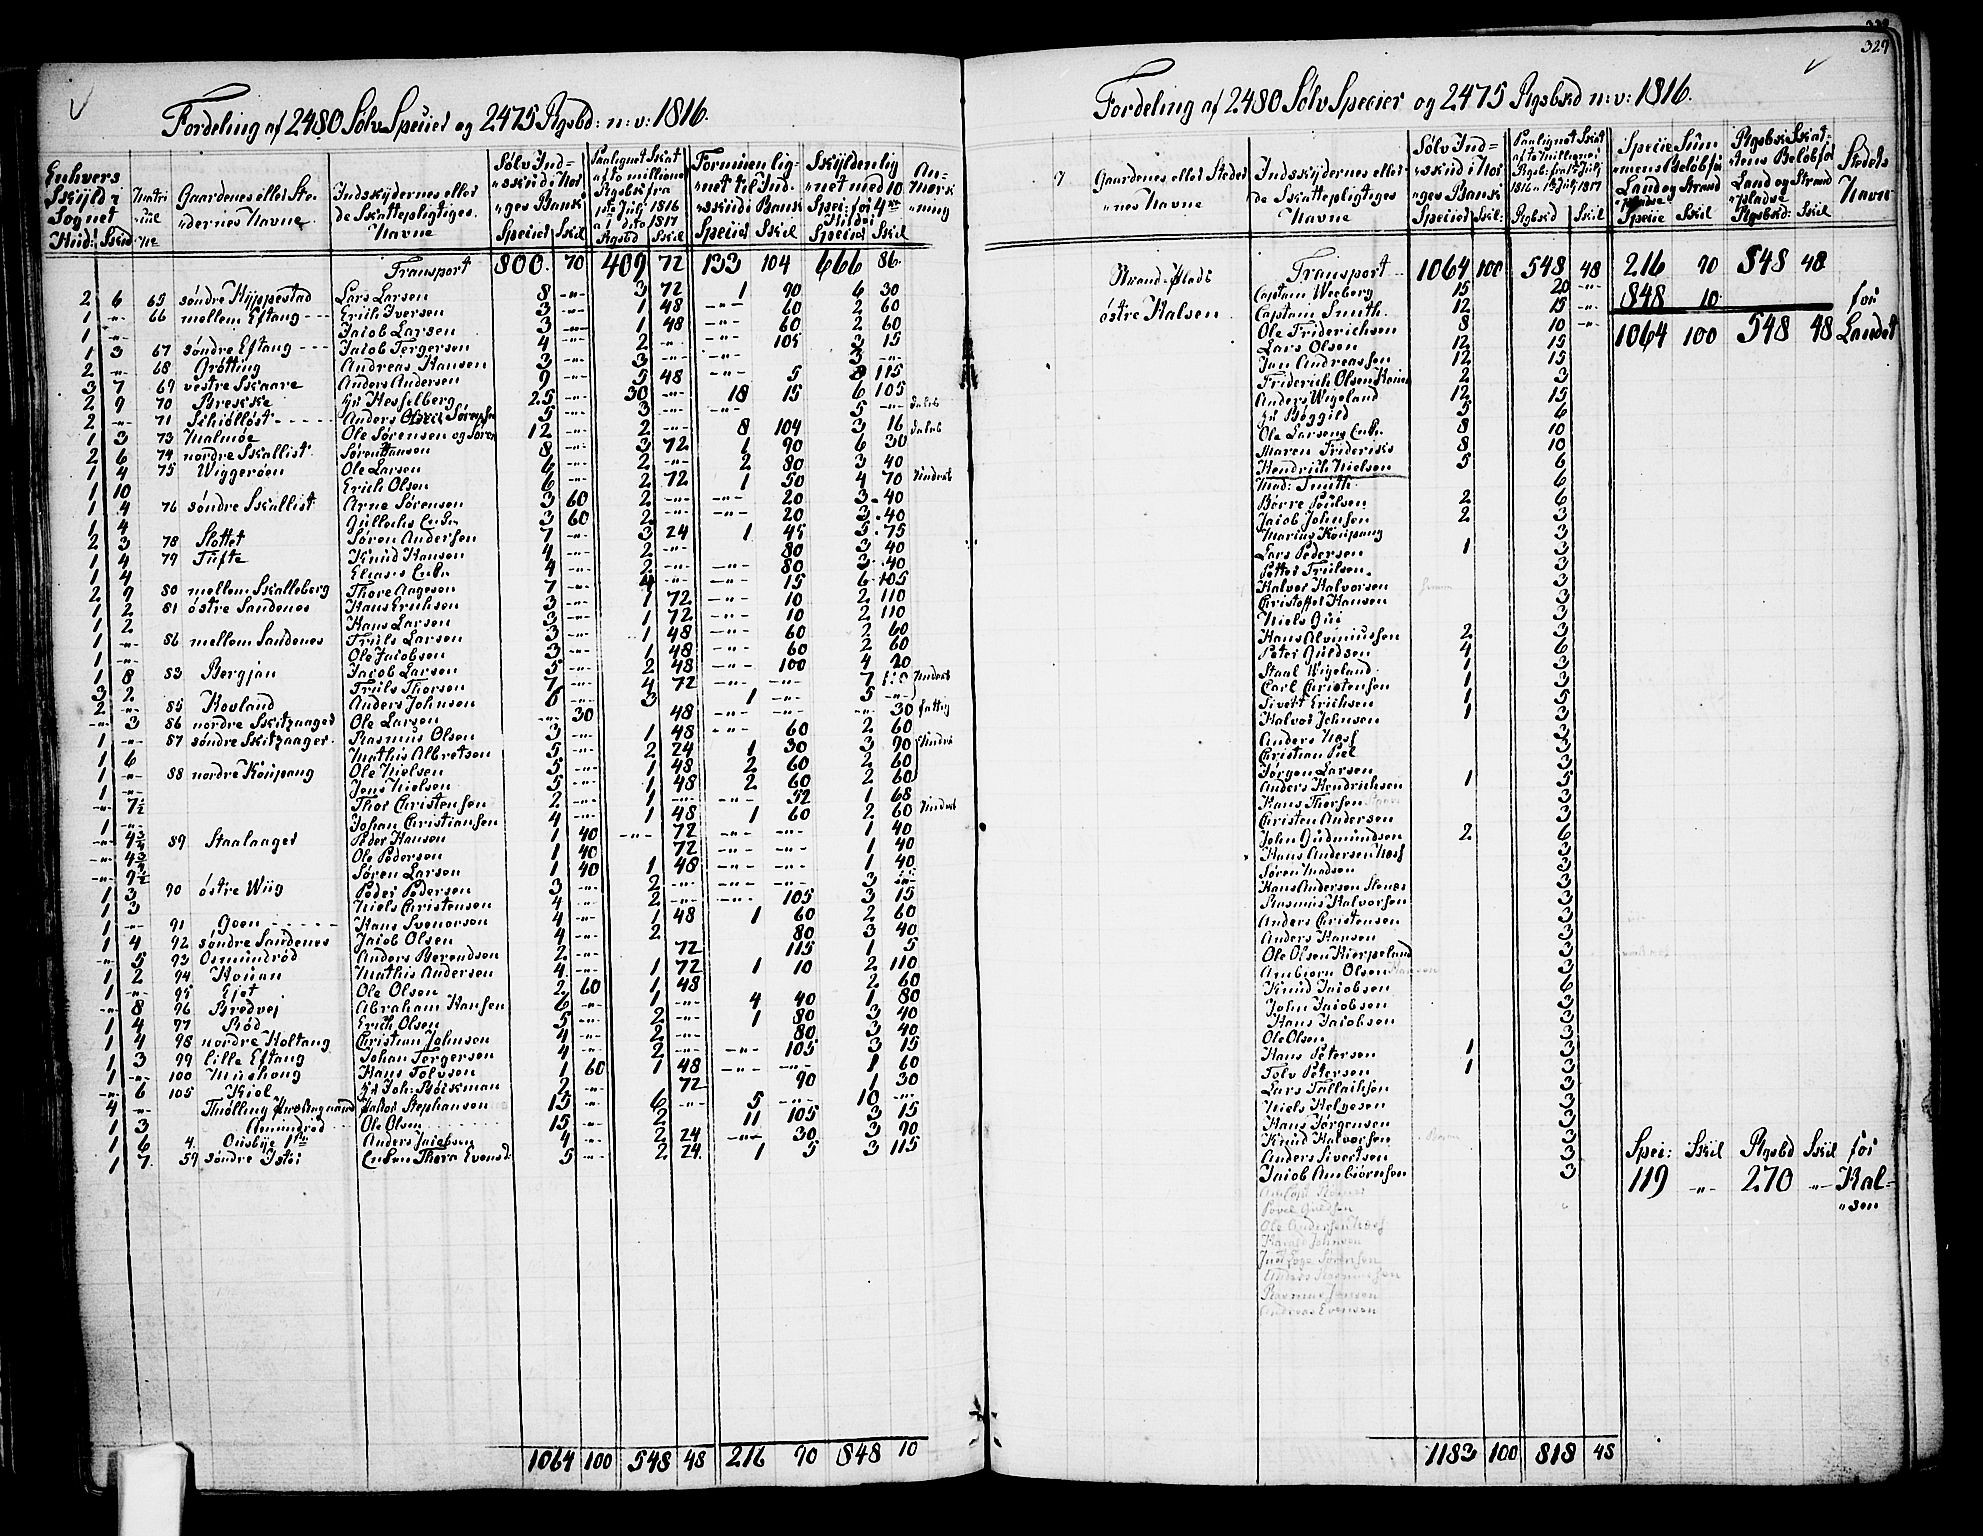 Fordeling af 2480 Sølv Specier og 2475 Rgsbd: n: v: 1816.
Enhvers Skÿld i Sognet Hud: Skind
Matri- cule No
Gaardenes eller Ste- dernes Navne
Indskÿdernes eller de Skattepligtiges Navne
Sølv Ind- skud i Nor- ges Bank Specier Skil
Paalignet Skat af to millioner Rgsbk fra 1ste Julÿ 1816 a 1 dito 1817 Rgsbd Skil
Formuen lig- net til Ind- skud i Bank Specier Skil
Skÿlden lig- net med 10 Spec: for 4re Huder Specier Skil
An- mærk- ning
Transport 800. 70 409 72 133 104 666 86.
2 6 65 søndre Hÿppestad Lars Larsen 8 -"- 3 72 1 90 6 30
1 -"- 66 mellem Eftang Erich Iversen 3 -"- 1 48 -"- 60 2 60
1 -"- Jacob Larsen 3 -"- 1 48 -"- 60 2 60
1 3 67 søndre Eftang Jacob Tergersen 4 -"- 2 -"- 105 3 15
2 -"- 68 Grøtting Andreas Hansen 3 -"- 3 -"- 3 -"-
3 7 69 vestre Skaare Anders Andersen 9 -"- 5 48 5 8 115
2 9 70 Breskke Hr Hesselberg 25 -"- 30 -"- 18 15 6 105
2 -"- 71 Schiølløst Anders Sørensen 5 -"- 3 -"- -"- 5 -"-
1 3 73 Malmøe Ole Sørensen og Søren 12 -"- 2 -"- 8 104 3 16
2 6 74 nordre Skallist Søren Hansen 8 -"- 3 72 1 90 6 30
1 4 75 Wiggerøen Ole Larsen 6 -"- 2 -"- 2 80 3 40
1 10 Erich Olsen 6 -"- 2 72 1 50 4 70
1 4 76 søndre Skallist Arne Sørensen 3 60 2 -"- -"- 20 3 40
1 4 Gullachs Enke 3 60 2 -"- -"- 20 3 40
2 3 78 Slottet Søren Andersen 7 -"- 3 24 1 45 5 75
1 4 79 Tufte Knud Hansen 4 -"- 2 -"- 80 3 40
1 4 Eliases Enke 4 -"- 2 -"- -"- 80 3 40
2 9 80 mellem Skalleberg Thore Aagesen 7 -"- 4 -"- -"- 15 6 105
1 2 81 østre Sandenes Hans Erichsen 3 -"- 1 72 -"- 10 2 110
1 2 Hans Larsen 3 -"- 1 72 -"- 10 2 110
1 -"- 86 mellem Sandenes Truls Larsen 3 -"- 1 48 -"- 60 2 60
1 -"- Ole Jacobsen 3 -"- 1 48 -"- 60 2 60
1 8 83 Bergjan Jacob Larsen 5 -"- 2 48 -"- 100 4 20
3 2 Truls Thorsen 7 -"- 4 72 -"- -"- 7
2 -"- 85 Hovland Anders Johnsen 6 -"- 3 1 -"- 5 -"-
-"- 3 86 nordre Skitzaager Ole Larsen -"- 30 48 -"- -"- -"- 30 fattig
1 -"- 87 søndre Skitzaager Rasmus Olsen 3 -"- 1 48 -"- 60 2 60
1 6 Mathis Albretsen 5 -"- 2 24 1 30 3 90
1 -"- 88 nordre Kaupang Ole Nielsen 5 -"- 1 48 2 60 2 60
1 -"- Jens Nielsen 5 -"- 1 48 2 60 2 60
-"- 7½ Thor Christensen 2 -"- 1 -"- -"- 52 1 68
1 -"- Johan Christiansen 4 -"- 1 48 1 60 2 60
-"- 89 Staalaager Peder Hansen 1 40 -"- 72 -"- -"- 1 40
-"- Ole Pedersen 1 40 72 -"- -"- 1 40
-"- Søren Larsen 1 40 1 48 -"- -"- 1 40
1 3 90 østre Wiig Peder Pedersen 3 -"- 2 -"- -"- -"- 3
1 3 Niels Christensen 4 -"- 2 -"- -"- 105 3 15
1 -"- 91 Goen Hans Svenorsen 4 -"- 1 48 1 60 2 60
1 4 92 søndre Sandenes Jacob Olsen 4 -"- 2 80 3 40
-"- 5 93 Osmundrød Anders Berendsen 2 -"- 72 115 1 5
1 2 94 Houan Mathis Andersen 4 -"- 1 72 1 10 2 110
1 -"- 95 Ejet Ole Olsen 2 60 1 48 2 60
-"- 8 96 Bredvej Abraham Hansen 6 -"- 1 -"- 4 40 1 80
1 4 97 Rød Erich Olsen 5 -"- 2 -"- 1 80 3 40
1 4 98 nordre Holtang Christian Johnsen 4 -"- 2 -"- 80 3 40
1 3 99 lille Eftang Johan Tergersen 4 -"- 2 -"- -"- 105 3 15
1 -"- 100 Huehoug Hans Tolvsen 1 60 1 48 -"- -"- 1 60
-"- 6 105 Kiel Hr Joh: Bøckman 2 -"- 72 90 1 30
4 -"- Thølling Jacob Stephansen 15 -"- 6 -"- 5 -"- 10 -"-
1 3 Amundrød Ole Olsen 15 -"- 2 11 105 3 15
1 6 4 Ousbÿe Anders Jacobsen 4 -"- 2 24 -"- 30 3 90
1 7. 59 søndre Istøi Enken Thora Evensd. 5 -"- 2 24. 1 5 3 115
1064 100 548 48 216 90 848 10
329
Fordeling af 2480 Sølv Specier og 2475 Rgsbkd n: v: 1816.
Gaardenes eller Steder- nes Navne
Indskÿdernes eller de Skattepligtiges Navne
Sølv Ind- skud i Nor- ges Bank Specier Skil:
Paalignet Skat af to millioner Rgsb: fra 1ste Julÿ 1816 - 1ste Julÿ 1817 Rgsbkd Skil
Specie Sum- mens Beløb for Land og Strand Pladse Specie Skil
Rgsbks Skat- tens Beløb for Land og Strand Pladse Rgsbkd: Skil
Stedets Navn
Transport 1064 100 548 48 216 90 548 48
Strand Plads Captain Weeberg 15 20 -"- 848 10 for
østre Halsen Captain Smith 12 15 -"-
Ole Friderichsen 8 10 -"- 1064 100 548 48 Landet
Lars Olsen 12 15
Jan Andreassen 12 15
Friderich Olsen 2 3
Anders Wigeland 12 15
Hr Bøggild 5 6
Ole Larsens Enke 8 10
Maren Frideriks 8 10
Hendrich Nielsen 5 6
Mad: Smith 6
Børre Poulsen 2 6
Jacob Johnsen 2 3
Marius Koupang 3
Lars Pedersen 1 3
Petter Trulsen 3
Halvor Halvorsen 3
Christoffer Hansen 3
Niels Gui 3
Hans Alviniussen 2 3
Peter Guldsen 4 6
Staal Wigeland 1 3
Carl Christensen 1 3
Sivert Erichsen 1 5
Halvor Johnsen 1 3
Anders Næss 3
Christian Piel 2
Jørgen Larsen 3
Anders Hendrichsen 1 5
Hans Thorsen 3
Christen Andersen 3
John Gudmundsen 2 6
Hans Andersen Næss 3
Søren Madsen 3
Hans Andersen Stenes 3
Rasmus Halvorsen 3
Anders Christensen 3
Anders Hansen 3
Ole Olsen Kierpeland 3
Ambiørn Olsen 3
Knud Jacobsen 6
John Jacobsen 3
Hans Jacobsen 3
Ole Olsen 3
Hans Petersen 1 3
Tolv Petersen 1 3
Lars Tallaihsen 3
Niels Helgesen 3
Hans Jørgensen 3
Knud Halvorsen 3
Anders Sivertsen 3
Jacob Ambiørnsen 3
Spec: Skil Rgsbd Skil for
119 -"- 270 -"- Hal-
"sen
Povel Guldsen
Ole Andersen Næss
Harald Johnsen
Rasmus Jansen
Andreas Evensen
1183 100 818 48